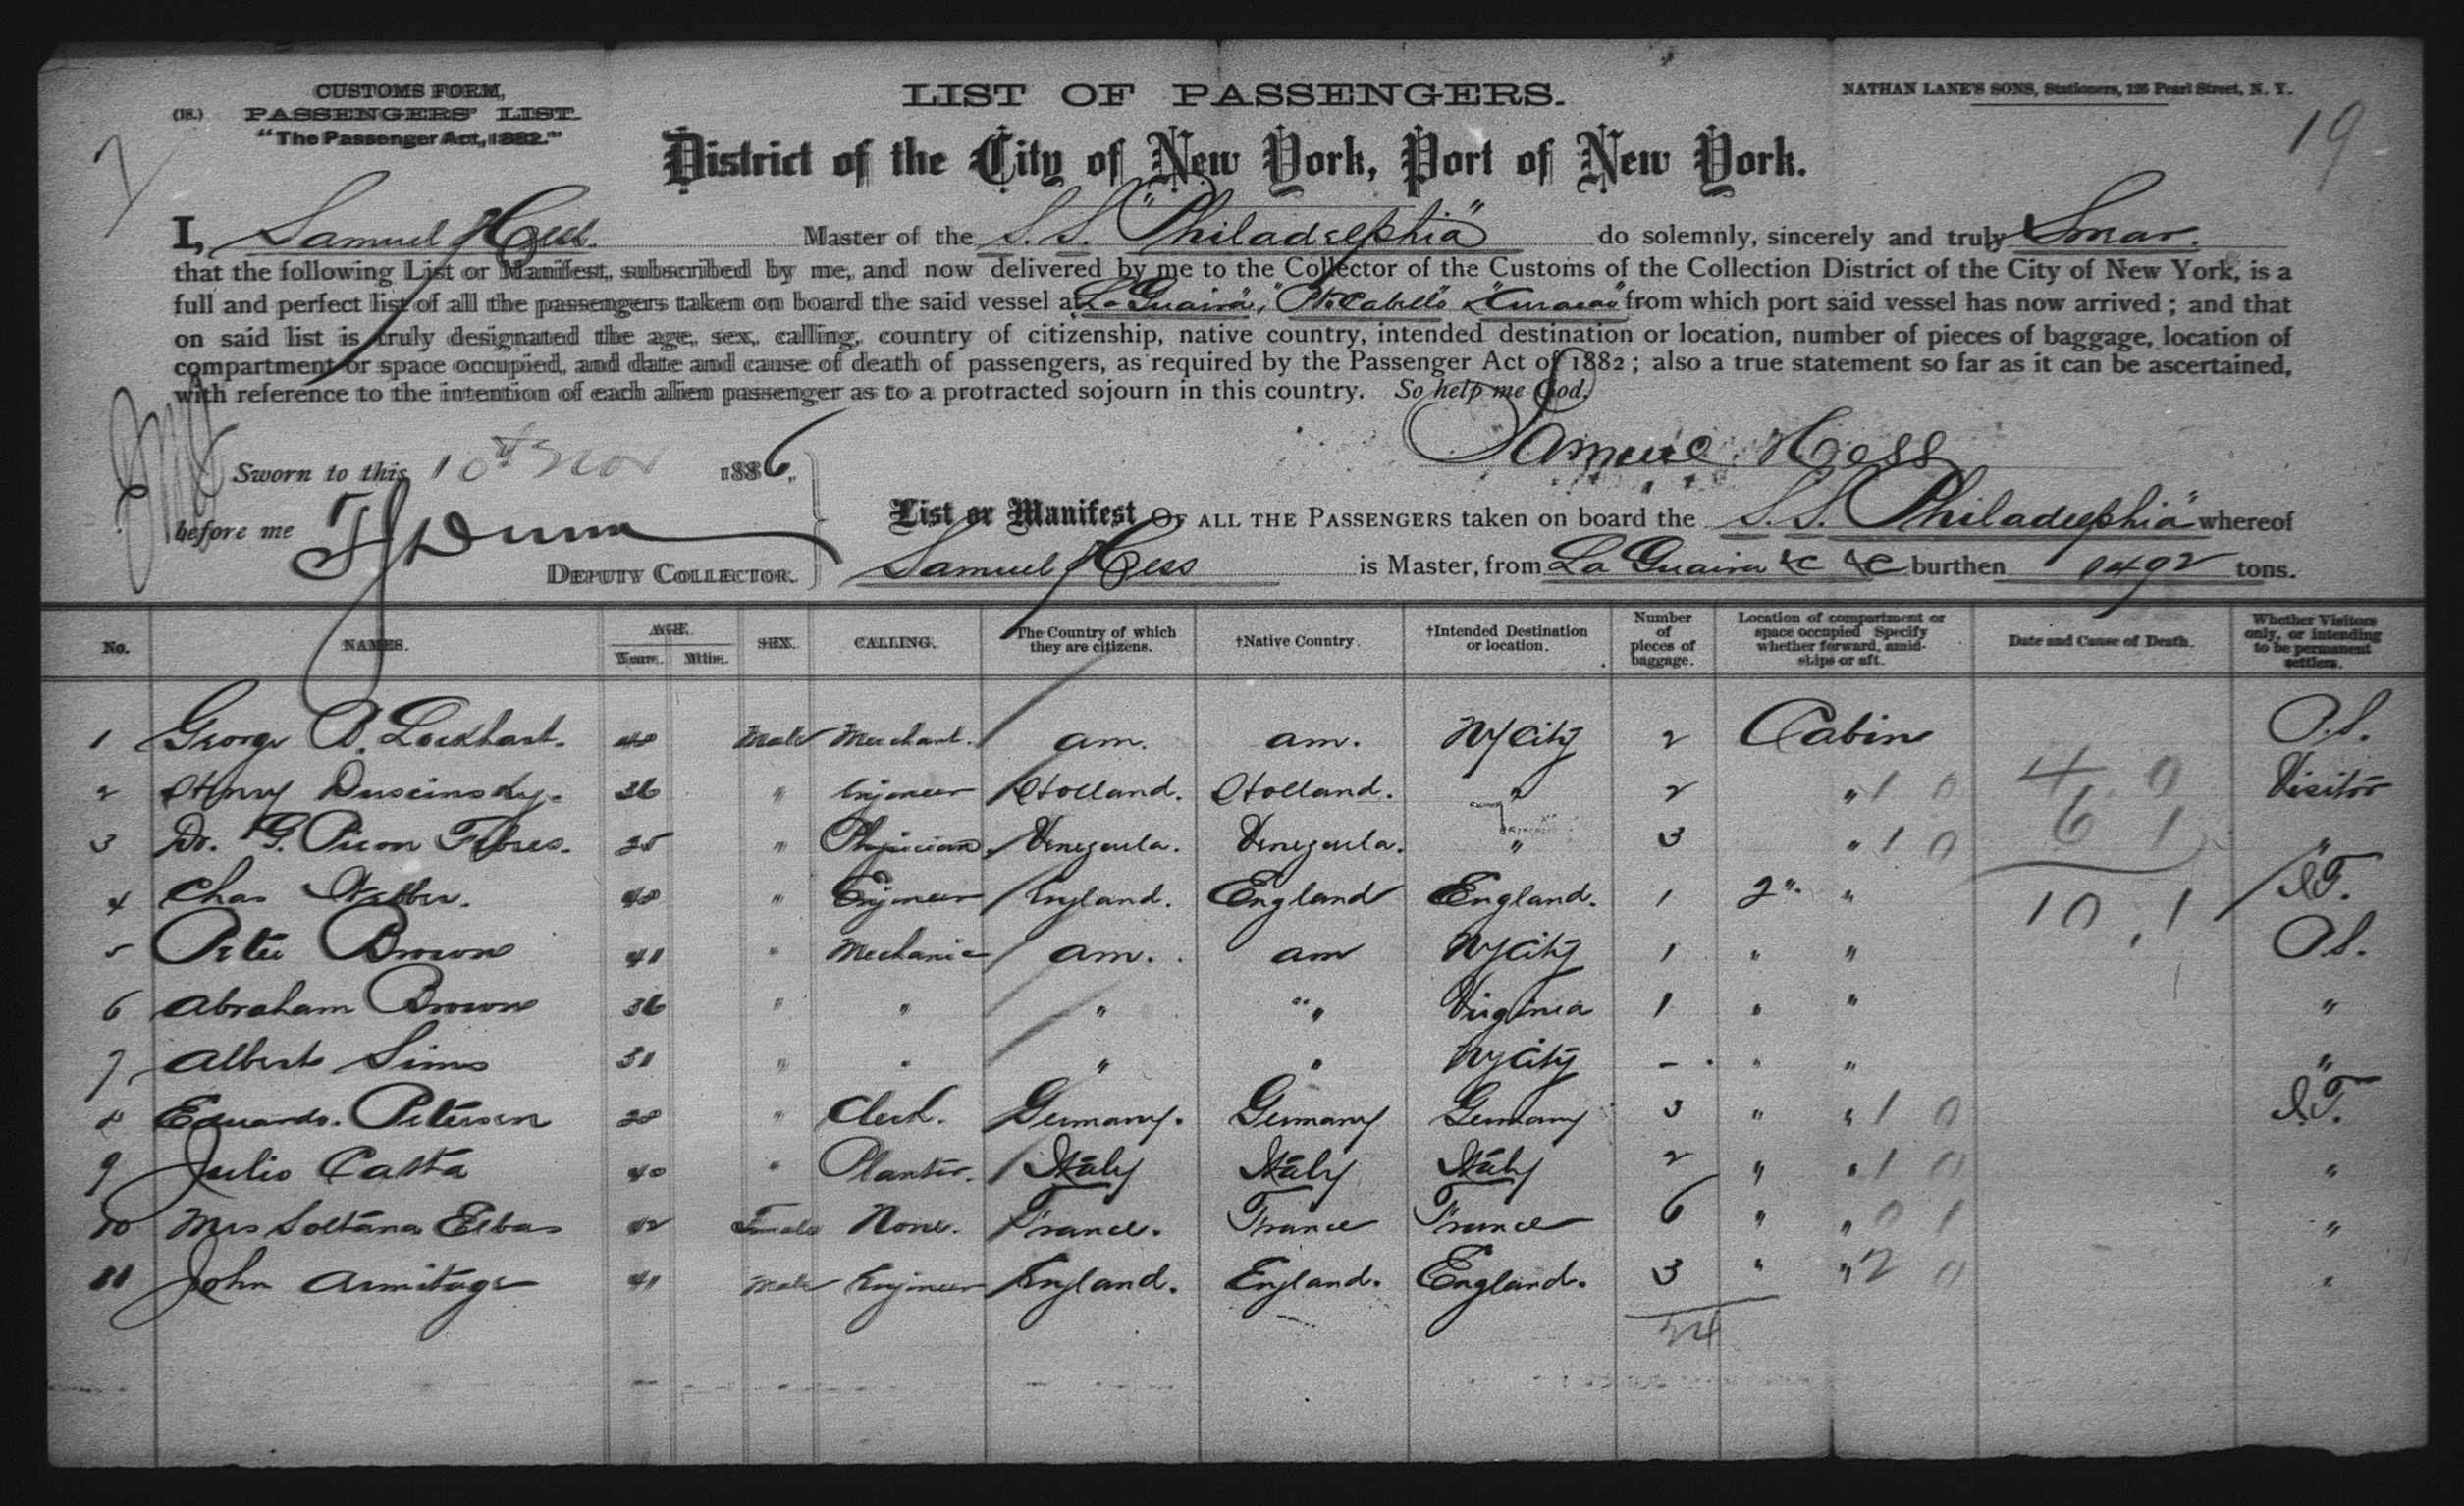 CUSTOMS FORM,
(18.) PASSENGERS' LIST.
"The Passenger Act, 1882."
LIST OF PASSENGERS.
NATHAN LANE'S SONS, Stationers, 126 Pearl Street, N. Y.
19
District of the City of New York, Port of New York.
I, Samuel Hess. Master of the S.S. "Philadelphia" do solemnly, sincerely and truly Swear.
that the following List or Manifest, subscribed by me, and now delivered by me to the Collector of the Customs of the Collection District of the City of New York, is a
full and perfect list of all the passengers taken on board the said vessel at "La Guaira", "Pto Cabello" & "Curacao" from which port said vessel has now arrived ; and that
on said list is truly designated the age, sex, calling, country of citizenship, native country, intended destination or location, number of pieces of baggage, location of
compartment or space occupied, and date and cause of death of passengers, as required by the Passenger Act of 1882 ; also a true statement so far as it can be ascertained,
with reference to the intention of each alien passenger as to a protracted sojourn in this country. So help me God.
Samuel Hess
Sworn to this 10th Nov 1886.
before me
DEPUTY COLLECTOR.
List or Manifest OF ALL THE PASSENGERS taken on board the S.S. "Philadelphia" whereof
Samuel Hess is Master, from La Guaira &c &c burthen 1492 tons.
No. NAMES. AGE. Years. Mths. SEX. CALLING. The Country of which they are citizens. †Native Country. †Intended Destination or location. Number of pieces of baggage. Location of compartment or space occupied Specify whether forward, amidships or aft. Date and Cause of Death. Whether Visitors only, or intending to be permanent settlers.
1 George D. Lockhart. 48 Male Merchant. am. am. NY City 2 Cabin P.S.
2 Henry 36 " Engineer Holland. Holland. " 2 " 1 0 4 0 Visitor
3 Dr. G. Picon Febres. 25 " Physician. Venezuela. Venezuela. " 3 " 1 0 6 1 "
4 Chas Webber. 48 " Engineer England. England England. 1 2" " 10, 1 I.T.
5 Peter Brown 41 " Mechanic am. am NY City 1 " " P.S.
6 Abraham Brown 36 " " " " Virginia 1 " " "
7 Albert Sims 31 " " " " NY City - " " "
8 Eduardo. Petersen 28 " Clerk. Germany. Germany Germany 3 " " 1 0 I.T.
9 Julio Casta 40 " Planter. Italy Italy Italy 2 " " 1 0 "
10 Mrs Soltana Elbas 42 Female None. France. France France 6 " " 0 1 "
11 John Armitage 41 Male Engineer England. England. England. 3 " " 2 0 "
24